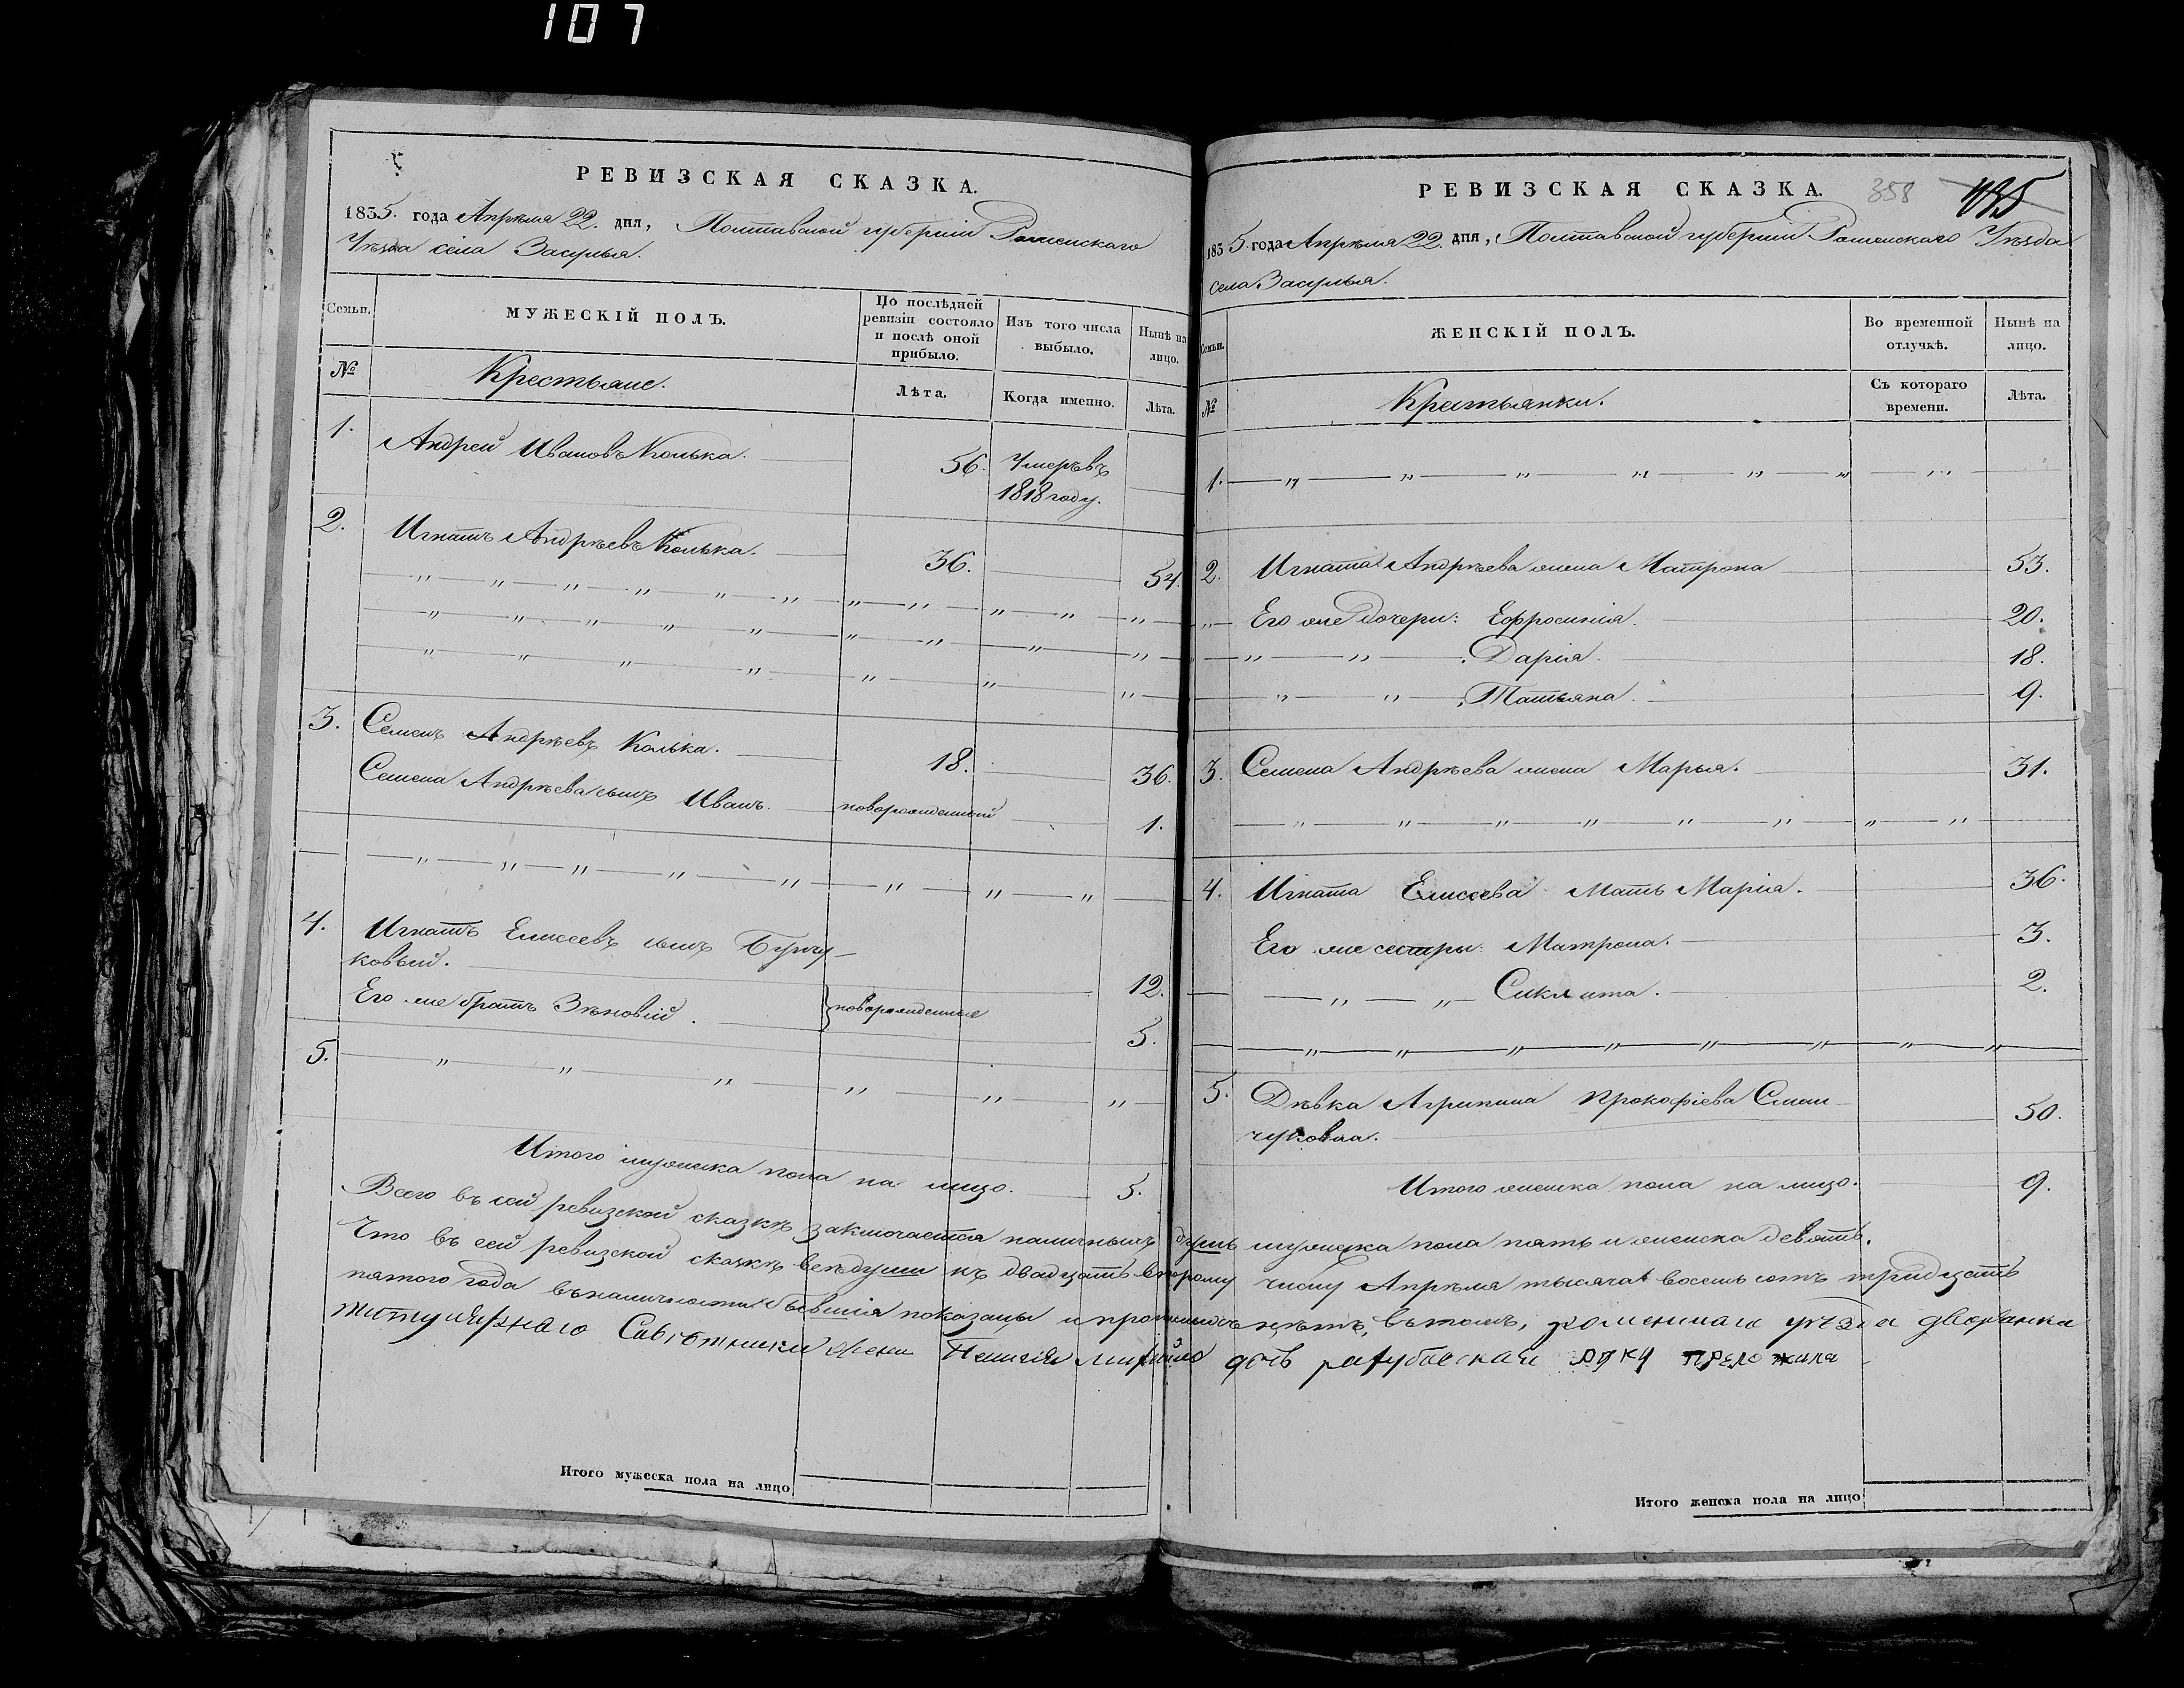 107
РЕВИЗСКАЯ СКАЗКА.
1835. года Апрѣля 22. дня, Полтавской губерніи Роменскаго
Уѣзда села Засулья.
Семьи.
МУЖЕСКІЙ ПОЛЪ.
По послѣдней
ревизіи состояло
и послѣ оной
прибыло.
Изъ того числа
выбыло.
Нынѣ на
лицо.
№
Крестьяне.
Лѣта.
Когда именно.
Лѣта.
1.
Андрей Ивановъ Колька.
56.
Умеръ въ
1818 году.
2.
Игнатъ Андрѣевъ Колька.
36.
54.
3.
Семенъ Андрѣевъ Колька.
18.
36.
Семена Андрѣева сынъ Иванъ.
новорожденный
1.
4.
Игнатъ Елисеевъ сынъ
ковый.
12.
Его же братъ Зѣновій.
новорожденные
5.
5.
Итого мужеска пола на лицо.
5.
РЕВИЗСКАЯ СКАЗКА.
358
435
1835 года Апрѣля 22. дня, Полтавской губерніи Роменскаго Уѣзда
села Засулья.
Семьи.
ЖЕНСКІЙ ПОЛЪ.
Во временной
отлучкѣ.
Нынѣ на
лицо.
№
Крестьянки.
Съ котораго
времени.
Лѣта.
1.
2.
Игната Андрѣева жена Матрона
53.
Его же дочери: Ефросинія.
20.
Дарія.
18.
Татьяна.
9.
3.
Семена Андрѣева жена Марья.
31.
4.
Игната Елисеева Мать Марія.
36.
Его же сестры: Матрона.
3.
Сиклита.
2.
5.
Дѣвка Агрипина Прокофіева Семен
чуковна.
50.
Итого женска пола на лицо.
9.
Всего въ сей ревизской сказкѣ заключается наличныхъ душъ мужеска пола пять и женска девять.
Что въ сей ревизской сказкѣ всѣ души къ двадцать второму числу Апрѣля тысяча восемь сотъ тридцать
пятого года въ наличности бывшія показаны и прописныхъ нѣтъ, въ томъ, роменскаго уѣзда дворянка
титулярнаго Совѣтника жена дочь рука преложила
Итого мужеска пола на лицо
Итого женска пола на лицо